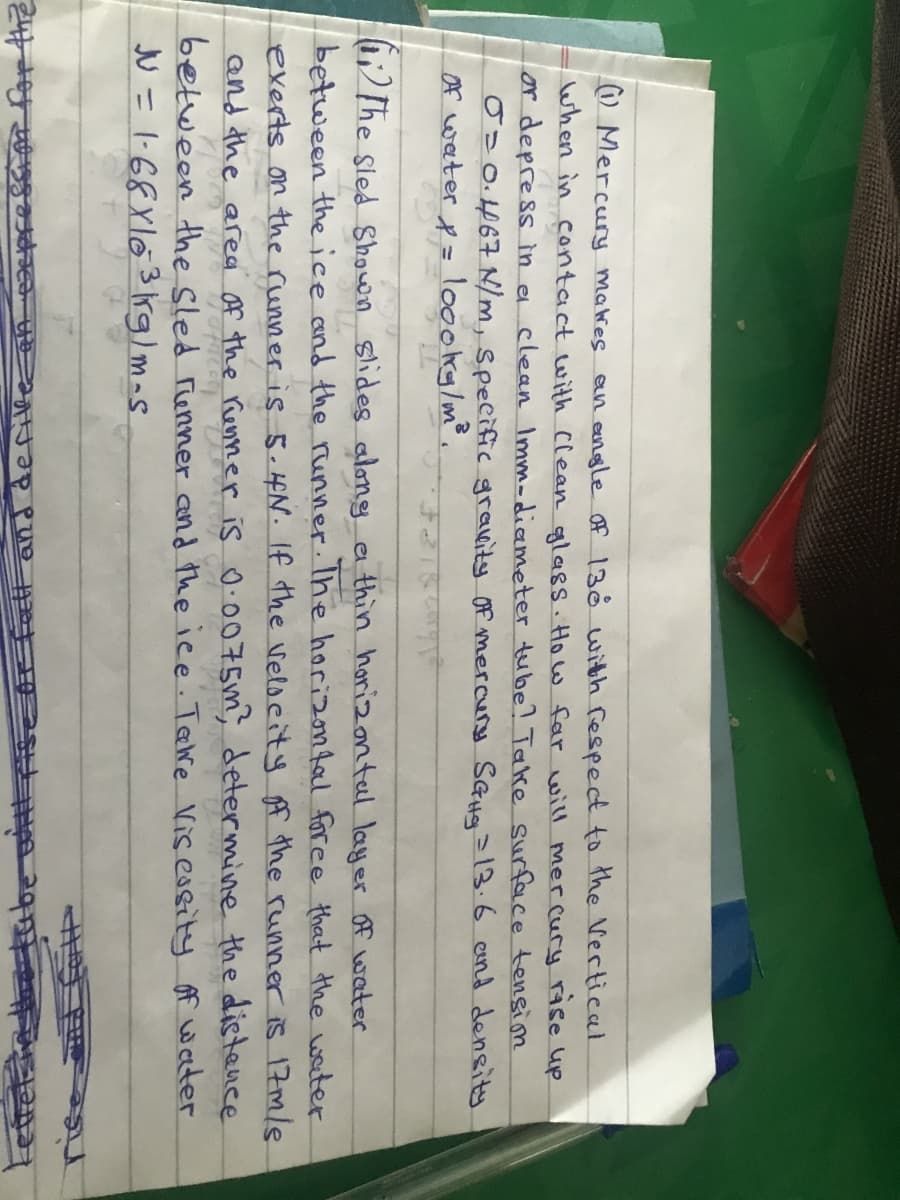 (i) Mercury makes an angle of 130° with respect to the vertical
when in contact with clean glass. How far will mercury rise up
or depress in a clean 1mm-diameter tube? Take surface tension
σ = 0.467 N/m, specific gravity of mercury SGHg = 13.6 and density
of water ρ = 1000kg/m³.
(ii) The sled shown slides along a thin horizontal layer of water
between the ice and the runner. The horizontal force that the water
exerts on the runner is 5.4N. If the velocity of the runner is 17m/s
and the area of the runner is 0.0075m², determine the distance
between the sled runner and the ice. Take viscosity of water
N = 1.68×10⁻³ kg/m-s